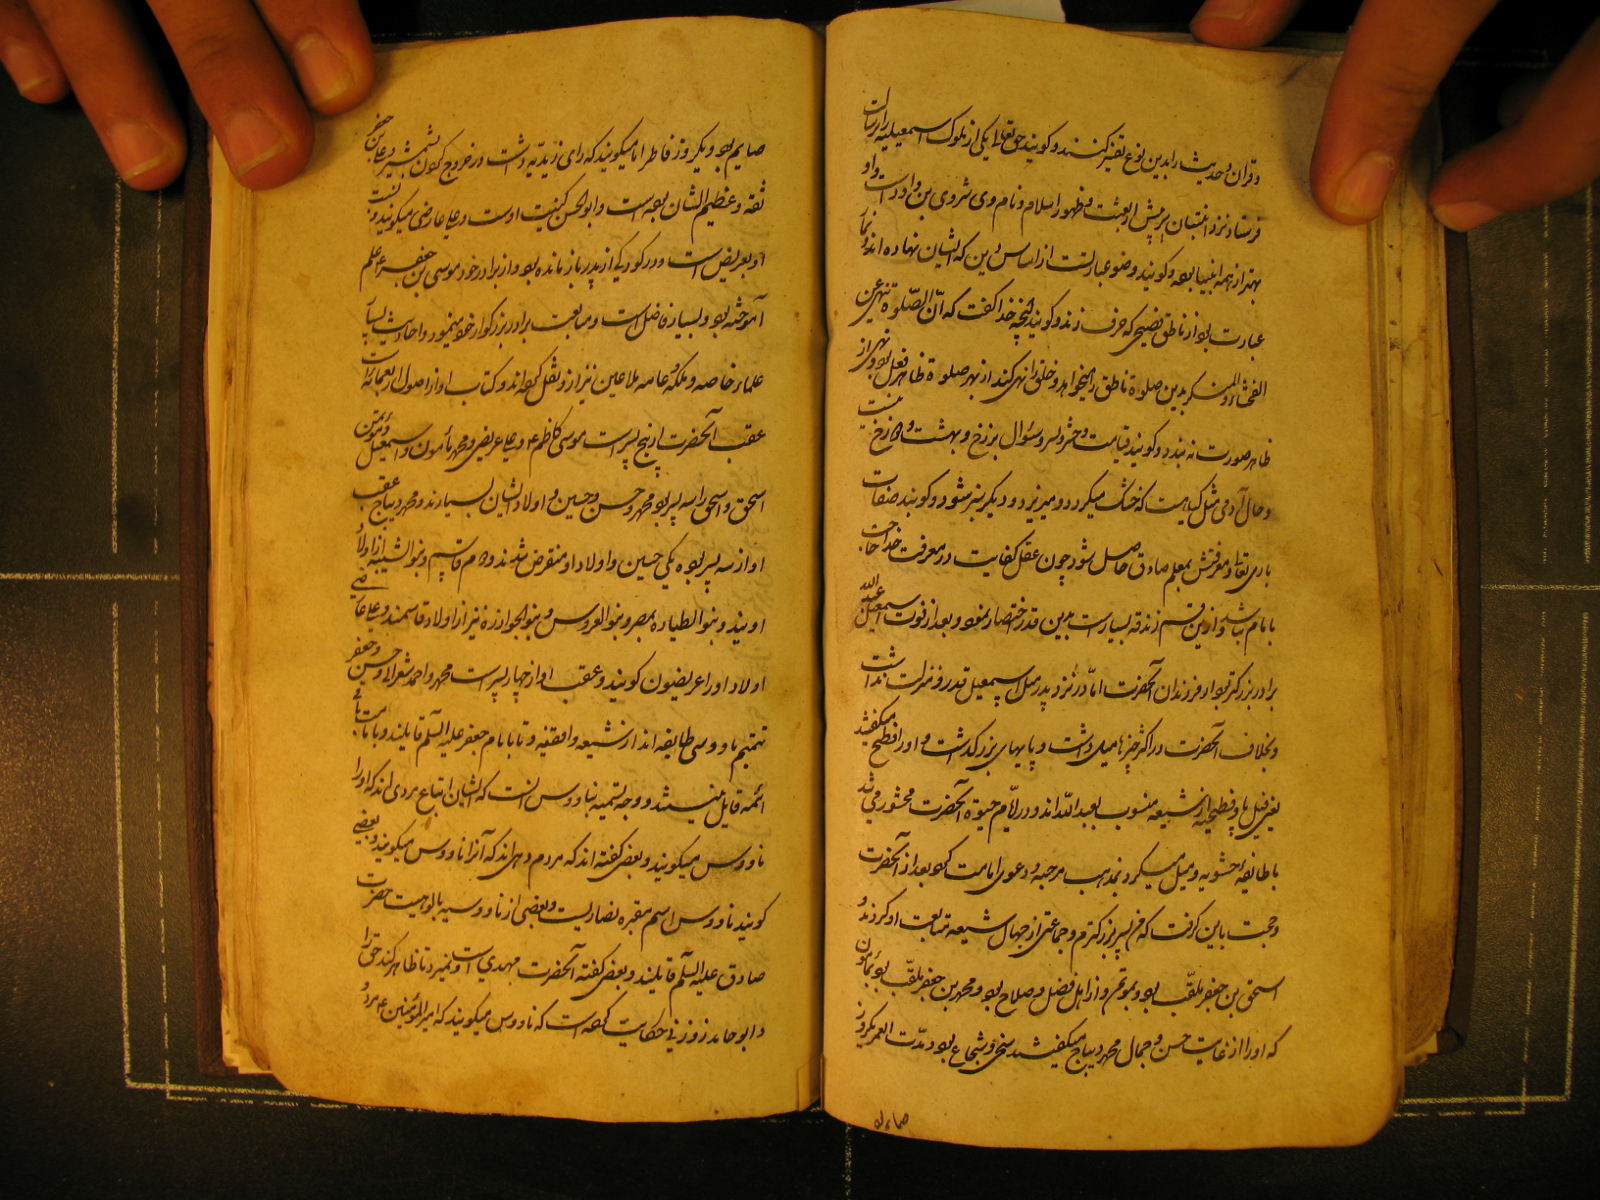 و قرآن و حدیث را بدین نوع تفسیر کنند و گویند حق تعالی یکی از ملوک اسمعیلیه را رسالت
فرستاد نزد ایشان پیش از بعثت و ظهور اسلام و نام وی شروی بن و او
بهتر از همه انبیا بوده و گویند وضو عبارتست از اساس دین که ایشان نهاده اند و نماز
عبارت بود از ناطق فصیح که حرف زند و گویند آنچه خدا گفت که انّ الصّلوة تنهی عن
الفحشاء والمنکر بدین صلوة ناطق را میخواهد و خلق را نهی کند از بهر صلوة ظاهر فعل بود و نهی از
ظاهر صورت نه بندد و گویند قیامت و حشر و نشر و سؤال برزخ و بهشت و دوزخ نیست
و حال آدمی مثل گیاهست که خشک میگردد و میریزد و دیگر سبز شود و گویند صفات
باری تعالی و معرفتش بمعلم صادق حاصل شود چون عقل کفایت در معرفت خداست حاجت
بامام نباشد و ازین قسم زندقه بسیارست بدین قدر اختصار نمود و بعد از فوت اسمعیل عبدالله
برادر بزرگتر بود از فرزندان آنحضرت امّا در نزد پدر مثل اسمعیل قدر و منزلت نداشت
و بخلاف آنحضرت در اکثر چیزها میل داشت و پایهای بزرگ داشت و او را افطح میگفتند
یعنی فیل پا و فطحیه از شیعه منسوب بعبدالله اند و در ایّام حیوة آنحضرت محشور می شد
با طایفه حشویه و میل میکرد بمذهب مرجیه و دعوی امامت کرد بعد از آنحضرت
و حجت باین گرفت که من پسر بزرگترم و جماعتی از جهال شیعه متابعت او کردند و
اسحق بن جعفر ملقّب بود بموتمن و از اهل فضل و صلاح بود و محمد بن جعفر ملقّب بود بمامون
که او را از غایت حسن و جمال محمد دیباج میگفتند سخی و شجاع بود مدّت العمر یکروز
صایم بو
صایم بود و یکروز فاطر اما میگویند که رای زیدیه داشت در خروج کردن بشمشیر و علی بن جعفر
ثقه و عظیم الشان بوده است و ابوالحسن کنیت اوست و علی عارضی میگویند و نسبت
او بعریض است و در کودکی از پدر باز مانده بود و از برادر خود موسی بن جعفر ع علم
آموخته بود و بسیار فاضل است و متابعت برادر بزرگوار خود مینمود و احادیث بسیار
علماء خاصه و بلکه عامه بلاعین نیز ازو نقل کرده اند و کتاب او از اصول اربعمائه است
عقب آنحضرت از پنج پسر است موسی کاظم ع و علی عریضی و محمد مأمون و اسمعیل و مؤتمن
اسحق و اسحق را سه پسر بود محمد و حسن و حسین و اولاد ایشان بسیارند و محمد دیباج عقب
او از سه پسر بوده یکی حسین و اولاد او منقرض شدند و دوم قاسم و بنو الشبیه از اولاد
اویند و بنو الطیاره بمصر و بنو العروس و بنو الخوارزه نیز از اولاد قاسمند و علی عریضی
اولاد او را عریضیون گویند و عقب او از چهار پسر است محمد و احمد شعرانی و حسن و جعفر
تتمیم ناووسی طایفه اند از شیعه واقفیه و تا بامام جعفر علیه السّلم قایلند و بامامت باقی
ائمه قایل نیستند و وجه تسمیه بناووس آنست که ایشان اتباع مردی اند که او را
ناووس میگویند و بعضی گفته اند که مردم دهی اند که آنرا ناووس میگویند و بعضی
گویند ناووس اسم مقبره نصاریست و بعضی از ناووسیه بالوهیت حضرت
صادق علیه السّلم قایلند و بعضی گفته آنحضرت مهدی است او نمیرد تا ظاهر کند حق را
و ابو حامد زوزنی حکایت کرده است که ناووس میگویند که امیرالمؤمنین ع مرد و